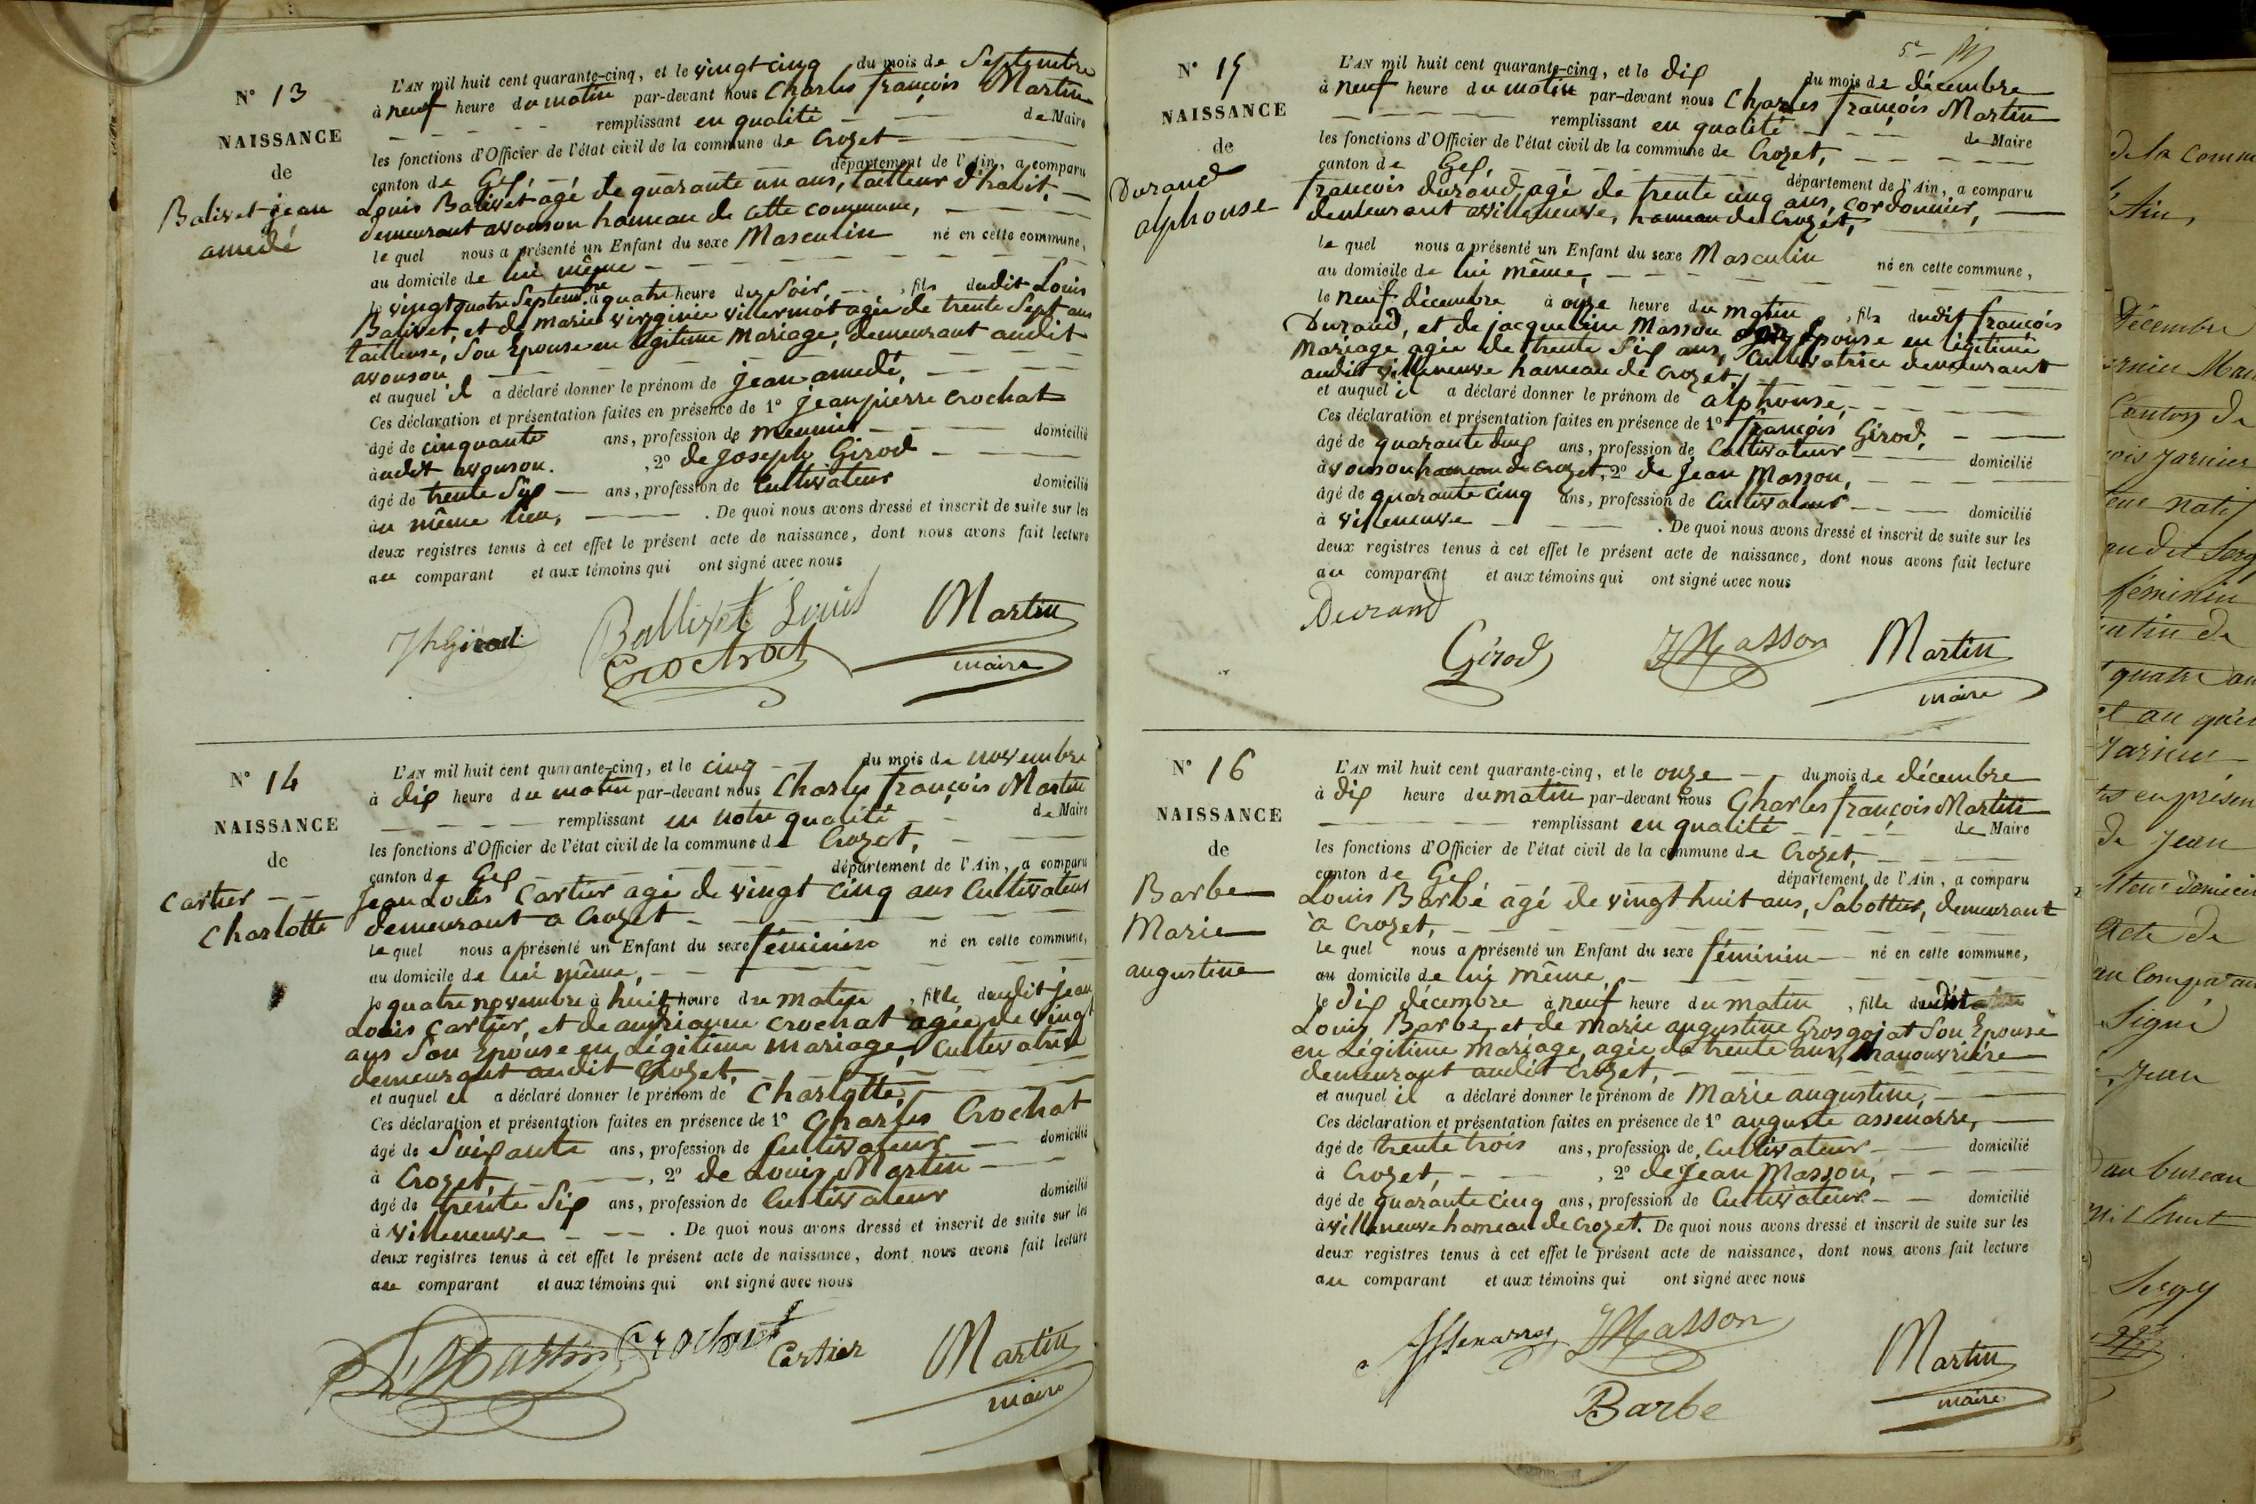 N° 13
NAISSANCE
de
Balivet jean
amedé
L'AN mil huit cent quarante-cinq, et le vingt cinq du mois de Septembre
à neuf heure du matin par-devant nous Charles françois Martin
remplissant en qualité de Maire
les fonctions d'Officier de l'état civil de la commune de Crozet
canton de Gex, département de l'Ain, a comparu
Louis Balivet agé de quarante un ans, tailleur d'habit,
demeurant avouson hameau de cette commune,
le quel nous a présenté un Enfant du sexe Masculin né en cette commune,
au domicile de lui même
le vingt quatre Septembre à quatre heure du Soir, fils dudit Louis
Balivet, et de marie virginie villermot agée de trente Sept ans
tailleuse, Son Epouse en légitime Mariage, demeurant audit
avouson
et auquel il a déclaré donner le prénom de jean amedé,
Ces déclaration et présentation faites en présence de 1° jean pierre Crochat
âgé de cinquante ans, profession de meunier domicilié
à udit avouson. , 2° de joseph Girod
âgé de trente Six ans, profession de Cultivateur domicilié
àu même lieu, . De quoi nous avons dressé et inscrit de suite sur les
deux registres tenus à cet effet le présent acte de naissance, dont nous avons fait lecture
au comparant et aux témoins qui ont signé avec nous
Jh Girod
Ballivet Louis
Crochat
Martin
maire
N° 14
NAISSANCE
de
Cartier
Charlotte
L'AN mil huit cent quarante-cinq, et le cinq du mois de novembre
à dix heure du matin par-devant nous Charles françois Martin
remplissant en notre qualité de Maire
les fonctions d'Officier de l'état civil de la commune de Crozet,
canton de Gex département de l'Ain, a comparu
Jean Louis Cartier agé de vingt cinq ans Cultivateur
demeurant a Crozet
le quel nous a présenté un Enfant du sexe féminin né en cette commune,
au domicile de lui même,
le quatre novembre à huit heure du matin, fille dudit jean
Louis Cartier, et de andrianne Crochat agée de vingt
ans Son Epouse en Légitime mariage, Cultivatrice
demeurant audit Crozet,
et auquel il a déclaré donner le prénom de Charlotte,
Ces déclaration et présentation faites en présence de 1° Charles Crochat
âgé de Soixante ans, profession de Cultivateur domicilié
à Crozet, , 2° de Louis Martin
âgé de trente Six ans, profession de Cultivateur domicilié
à villeneuve . De quoi nous avons dressé et inscrit de suite sur les
deux registres tenus à cet effet le présent acte de naissance, dont nous avons fait lecture
au comparant et aux témoins qui ont signé avec nous
L. Martin
Crochat
Cartier
Martin
maire
N° 15
NAISSANCE
de
Durand
alphonse
L'AN mil huit cent quarante-cinq, et le dix du mois de décembre
à neuf heure du matin par-devant nous Charles françois Martin
remplissant en qualité de Maire
les fonctions d'Officier de l'état civil de la commune de Crozet,
canton de Gex, département de l'Ain, a comparu
françois durand, agé de trente cinq ans, cordonnier,
demeurant avilleneuve, hameau de Crozet,
le quel nous a présenté un Enfant du sexe Masculin né en cette commune,
au domicile de lui même,
le neuf décembre à onze heure du matin, fils dudit françois
Durand, et de jacqueline Masson Son épouse en légitime
Mariage, agée de trente Six ans, Cultivatrice demeurant
audit villeneuve hameau de Crozet,
et auquel il a déclaré donner le prénom de alphonse,
Ces déclaration et présentation faites en présence de 1° françois Girod,
âgé de quarante deux ans, profession de Cultivateur domicilié
à vouson hameau de Crozet, 2° de Jean Masson,
âgé de quarante cinq ans, profession de Cultivateur domicilié
à villeneuve . De quoi nous avons dressé et inscrit de suite sur les
deux registres tenus à cet effet le présent acte de naissance, dont nous avons fait lecture
au comparant et aux témoins qui ont signé avec nous
Durand
Girod
JMasson
Martin
maire
N° 16
NAISSANCE
de
Barbe
Marie
augustine
L'AN mil huit cent quarante-cinq, et le onze du mois de décembre
à dix heure du matin par-devant nous Charles françois Martin
remplissant en qualité de Maire
les fonctions d'Officier de l'état civil de la commune de Crozet,
canton de Gex, département de l'Ain, a comparu
Louis Barbé agé de vingt huit ans, Sabottier, demeurant
à Crozet,
le quel nous a présenté un Enfant du sexe féminin né en cette commune,
au domicile de lui même,
le dix décembre à neuf heure du matin, fille dudit
Louis Barbe, et de Marie augustine Grosgojat Son Epouse
en Légitime Mariage, agée de trente ans, manouvrière
demeurant audit Crozet,
et auquel il a déclaré donner le prénom de Marie augustine,
Ces déclaration et présentation faites en présence de 1° auguste assenarre,
âgé de trente trois ans, profession de Cultivateur domicilié
à Crozet, , 2° de Jean Masson,
âgé de quarante cinq ans, profession de Cultivateur domicilié
à villeneuve hameau de Crozet. De quoi nous avons dressé et inscrit de suite sur les
deux registres tenus à cet effet le présent acte de naissance, dont nous avons fait lecture
au comparant et aux témoins qui ont signé avec nous
JMasson
Barbe
Martin
maire
de la comm
Ain,
Décembre
Canton de
natif
féminin
quatre an
en présen
de Jean
acte de
au Compara
Signé
Jean
au bureau
mil huit
Sergy